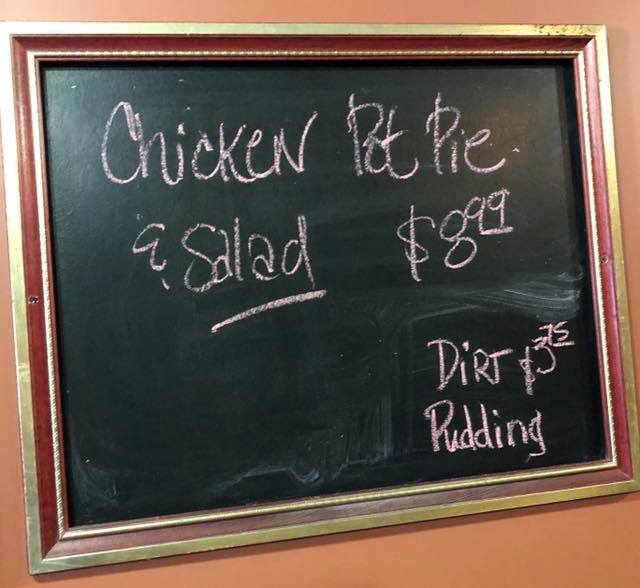 Chicken Pot Pie
& Salad $8.99
Dirt $3.75
Pudding